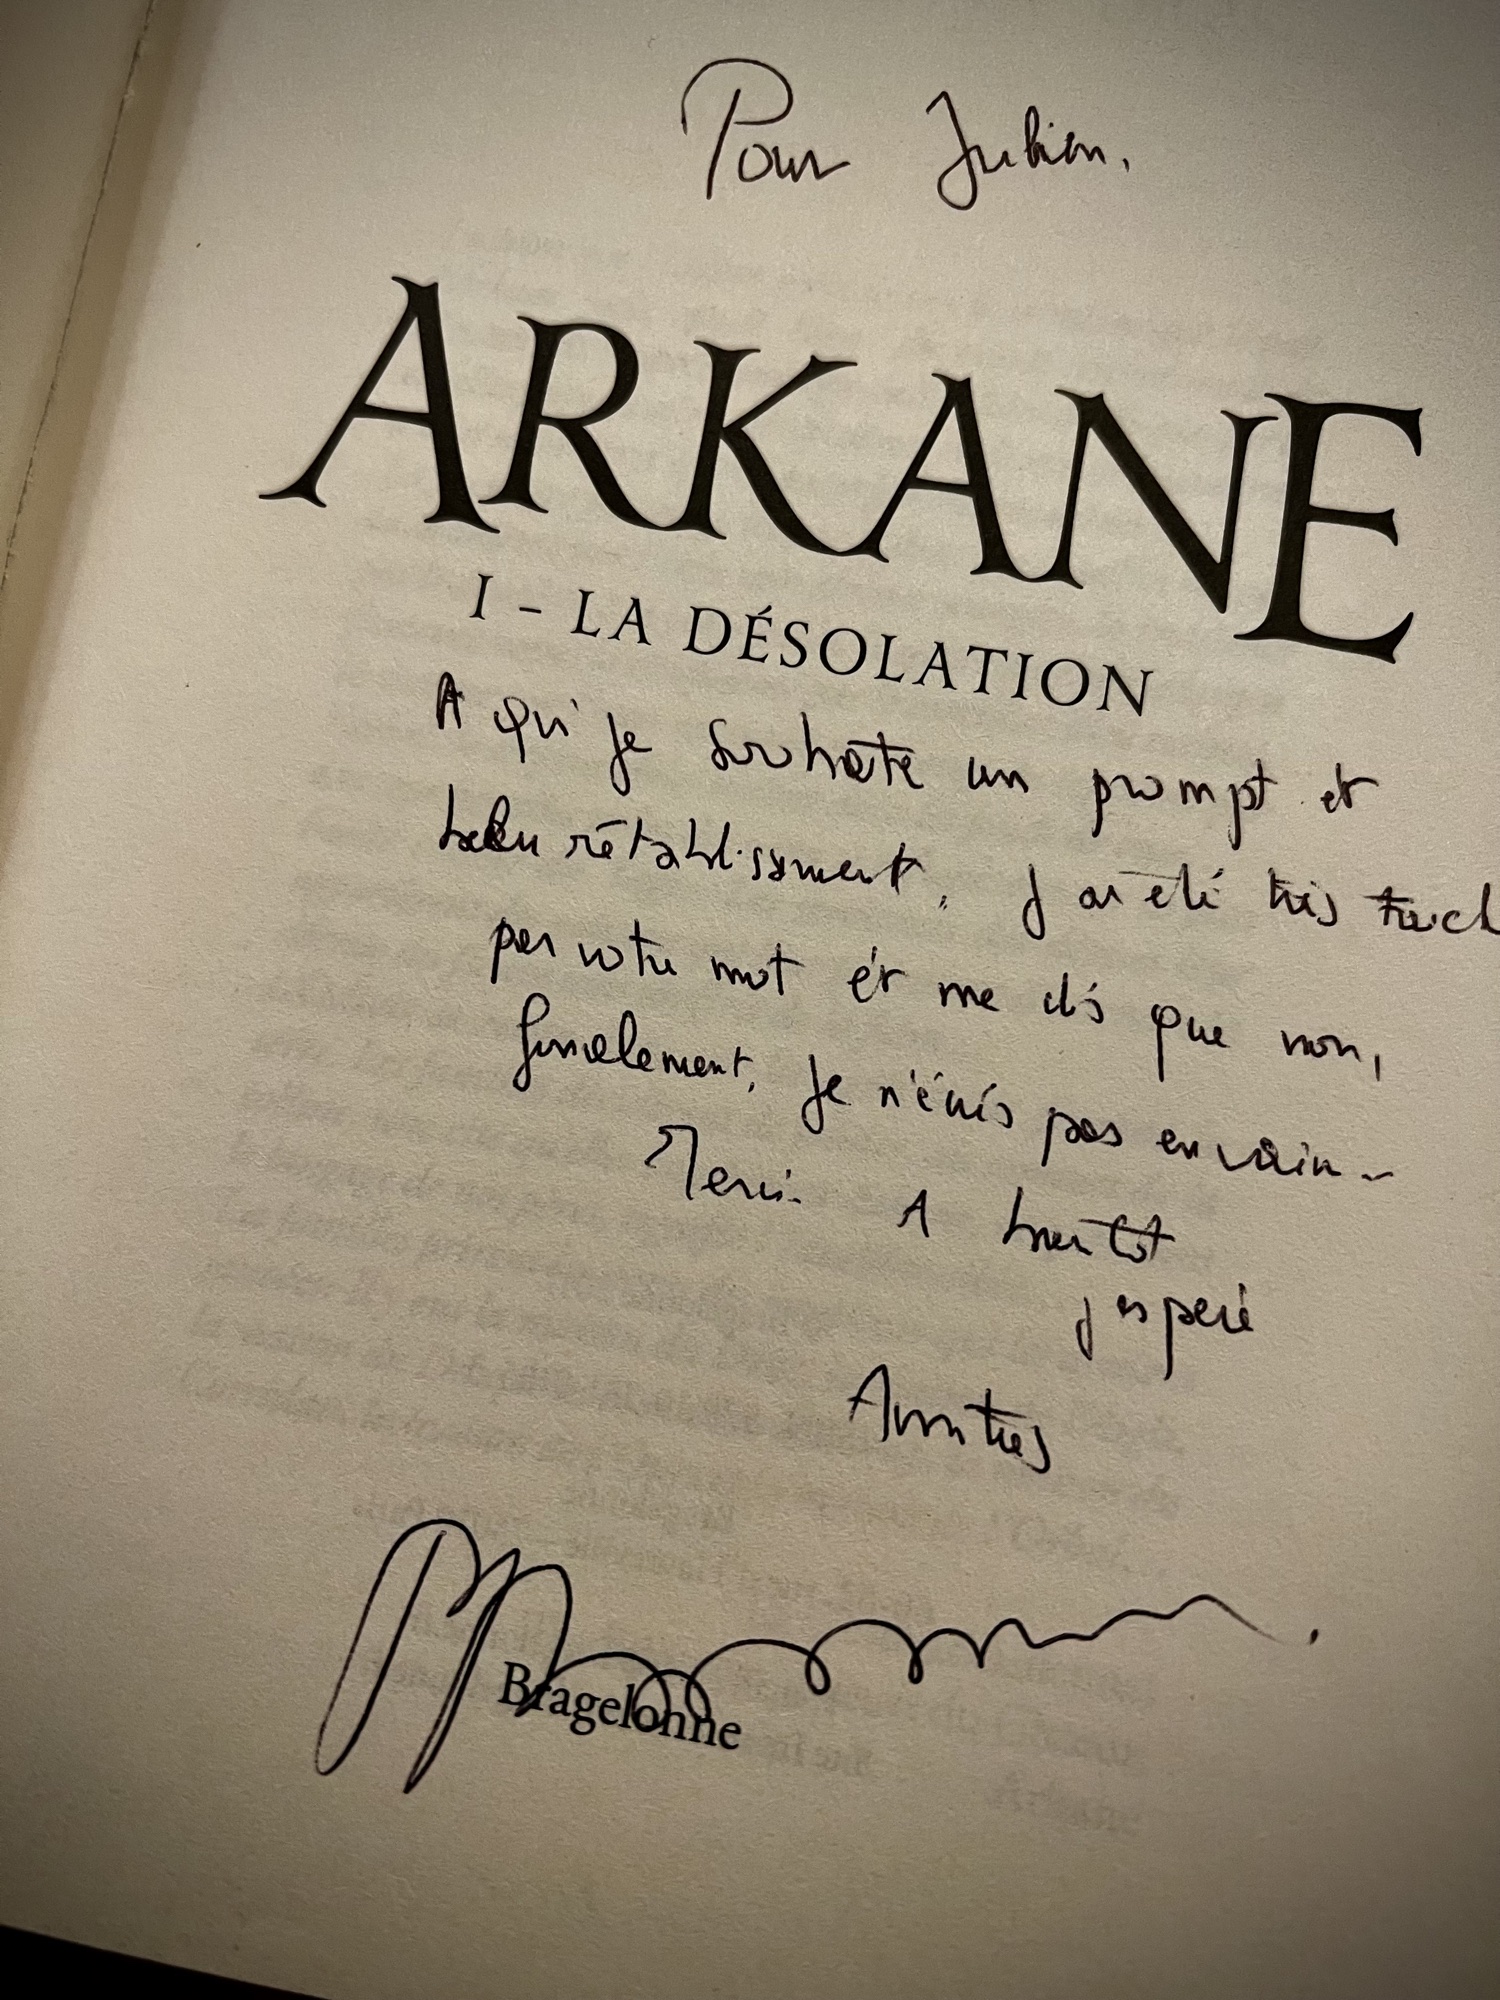 Pour Julien,
ARKANE
I – LA DÉSOLATION
A qui je souhaite un prompt et
rétablissement, j'ai été très touch
par votre mot et me dis que non,
finalement, je n'écris pas en vain –
Merci. A bientôt
j'espère
Amitiés
Bragelonne